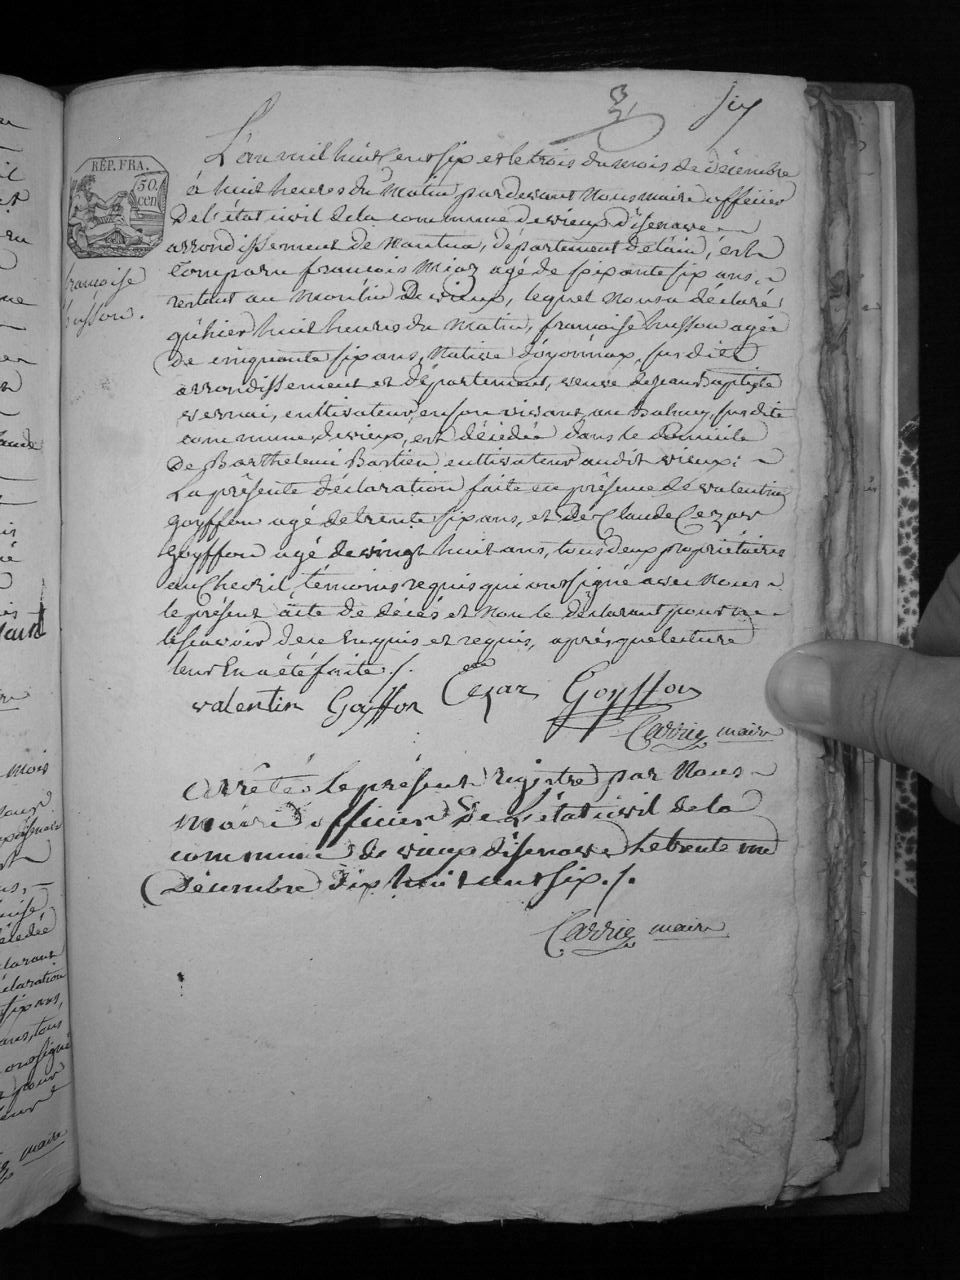 six
RÉP. FRA.
50
cen
L'an mil huit cent six et le trois du mois de décembre
à huit heures du matin pardevant nous maire officier
de l'état civil de la commune de vieux d'isenave
arrondissement de nantua, département de l'ain, est
comparu françois Miaz agé de soixante six ans,
restant au moulin de vieux, lequel nous a déclaré
qu'hier huit heures du matin, françoise husson agée
de cinquante six ans, native d'oyonnax, susdit
arrondissement et département, veuve de jean Baptiste
vernai, cultivateur, en son vivant, au Balmey, susdite
commune de vieux, est décédée dans le domicile
de Barthelemi Bastien cultivateur audit vieux:
La présente déclaration faite en présence de valentin
goyffon agé de trente six ans, et de Claude Cezar
goyffon agé de vingt huit ans, tous deux propriétaires
au Chevril, témoins requis qui ont signé avec nous
le présent acte de décés et non le déclarant pour ne
le scavoir de ce enquis et requis, après que lecture
leur en a été faite ./.
françoise
husson.
valentin Goyffon Cezar Goyffon
Carrier maire
Arrêté le présent registre par nous
maire officier de l'état civil de la
commune de vieux d'isenave le trente un
décembre dix huit cent six ./.
Carrier maire